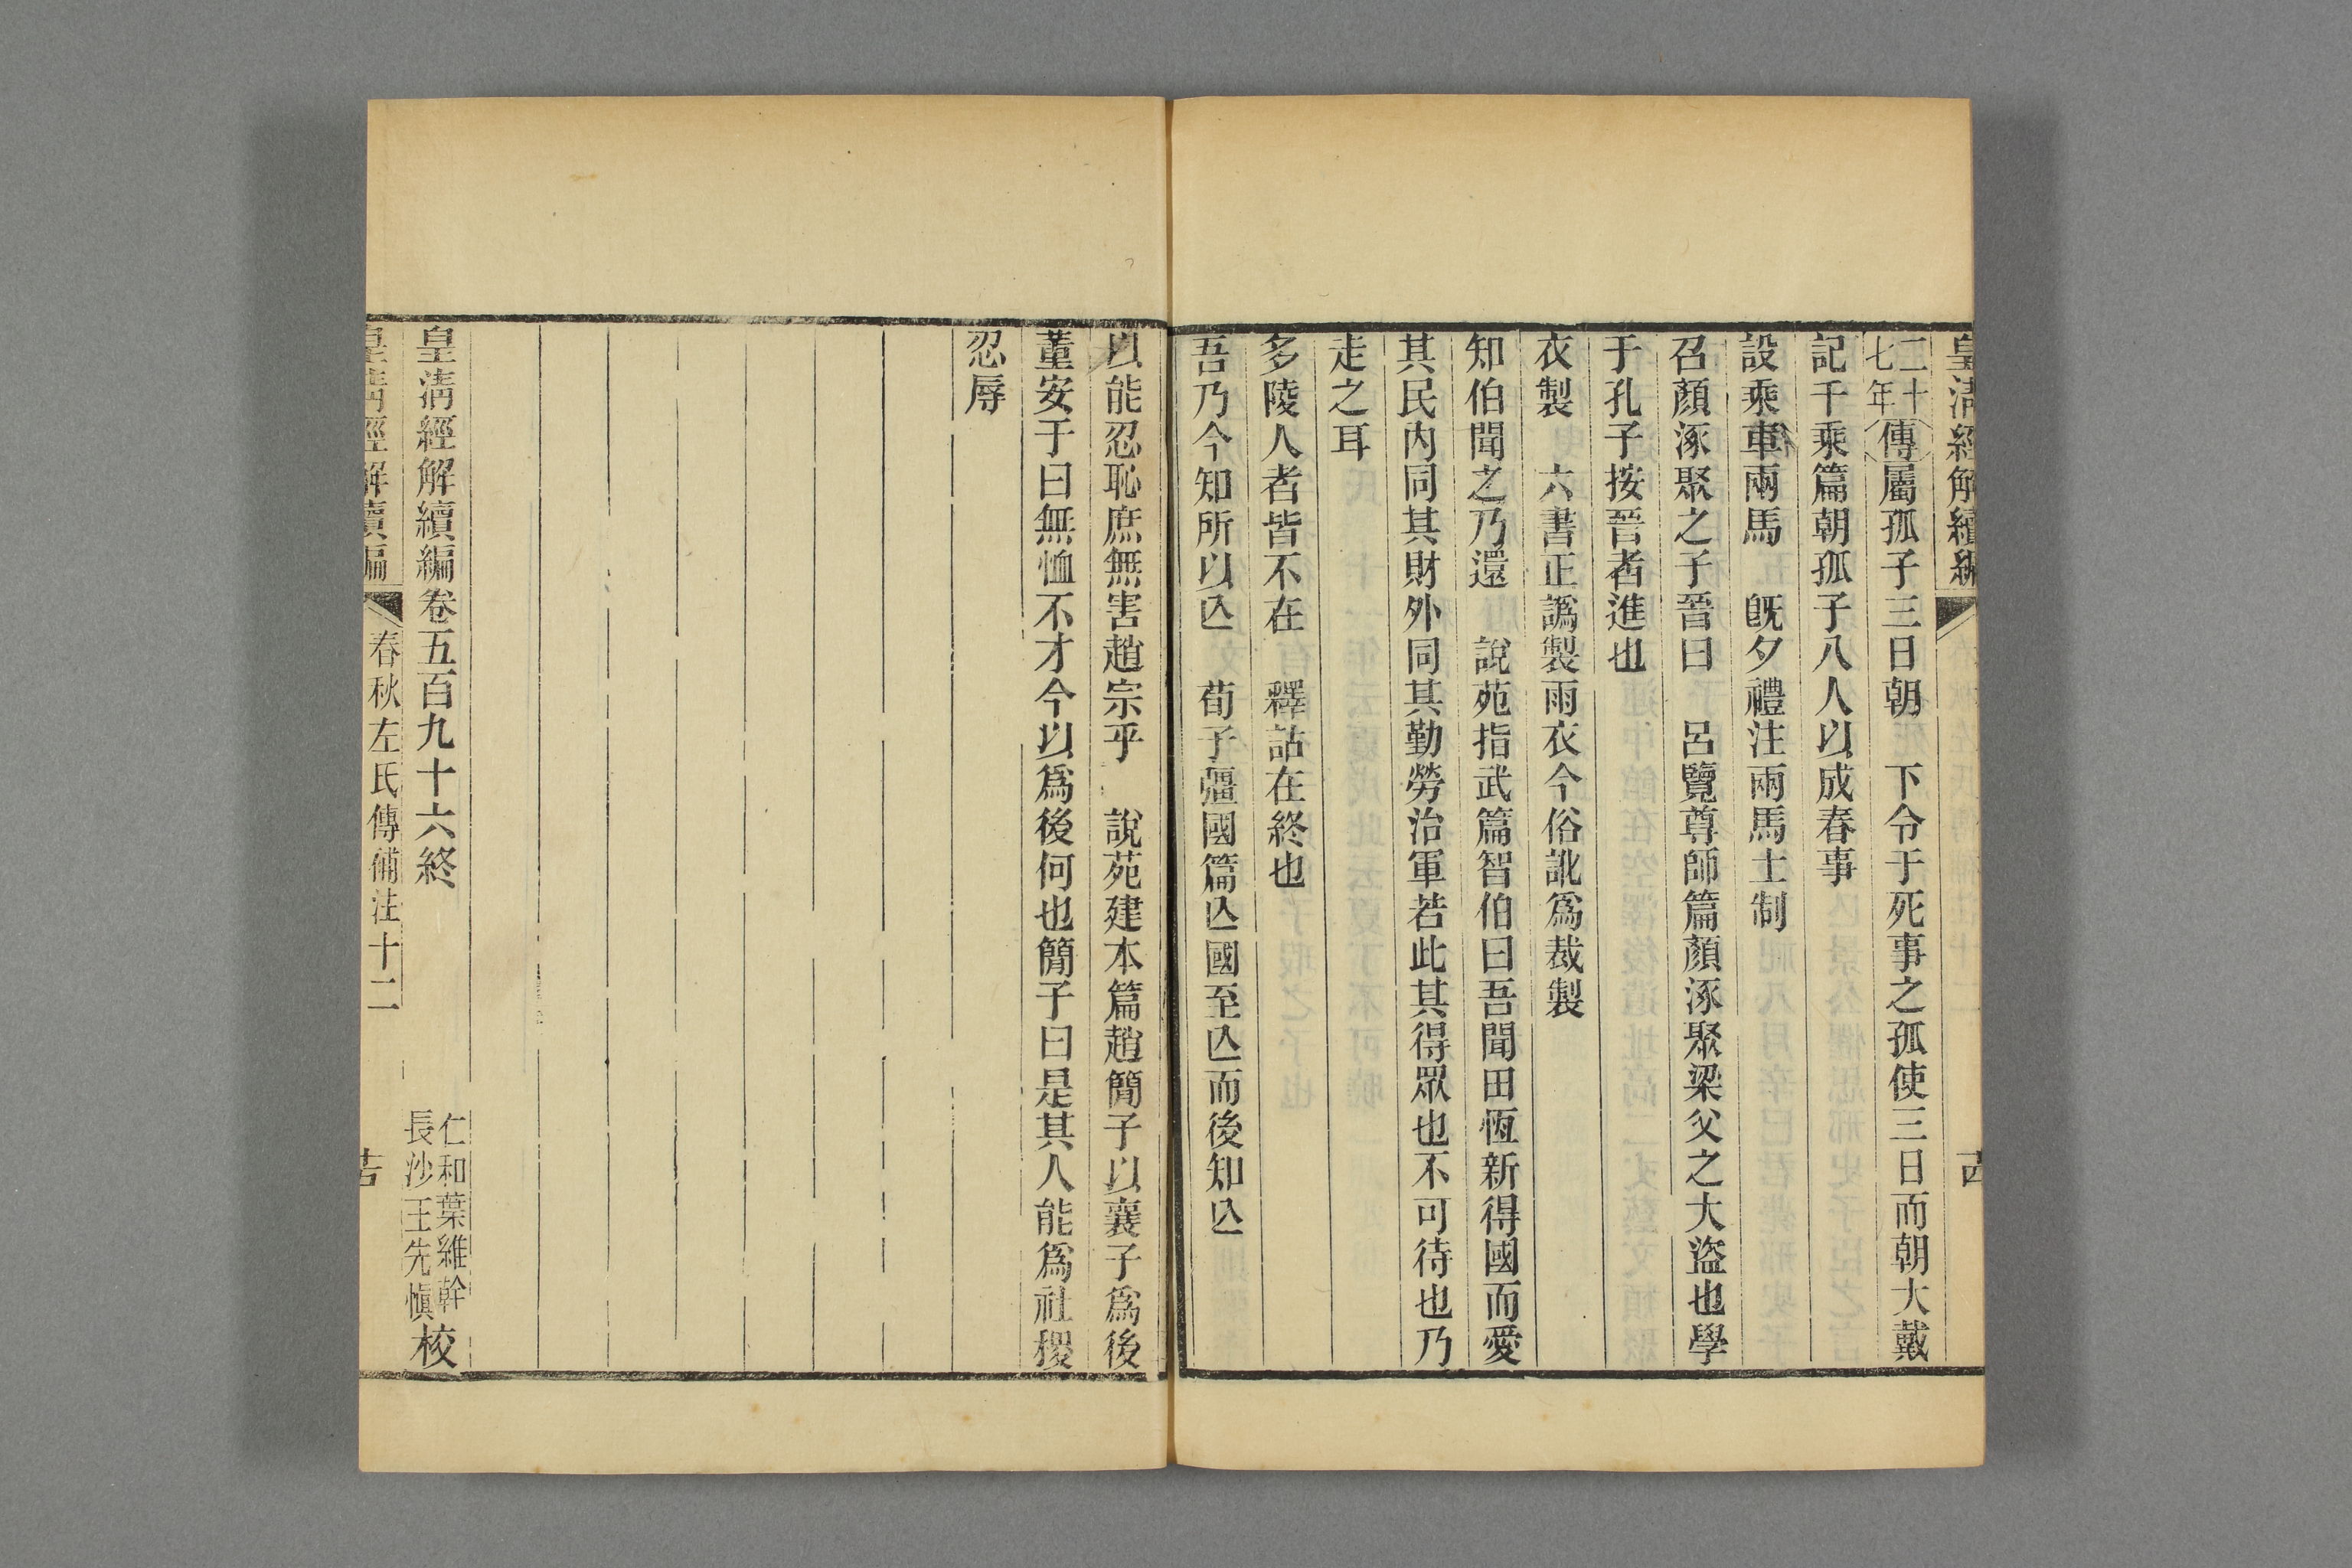 皇清經解續編
二十七年傳屬孤子三日朝　下令于死事之孤使三日而朝大戴
記千乘篇朝孤子八人以成春事
設乘車兩馬　旣夕禮注兩馬士制
召顏涿聚之子晉曰　呂覽尊師篇顏涿聚梁父之大盜也學
于孔子按晉者進也
衣製　六書正譌製雨衣今俗訛爲裁製
知伯聞之乃還　說苑指武篇智伯曰吾聞田恆新得國而愛
其民內同其財外同其勤勞治軍若此其得眾也不可待也乃
走之耳
多陵人者皆不在　釋詁在終也
吾乃今知所以亾　荀子彊國篇亾國至亾而後知亾
以能忍恥庶無害趙宗乎　說苑建本篇趙簡子以襄子爲後
董安于曰無恤不才今以爲後何也簡子曰是其人能爲社稷
忍辱
皇淸經解續編卷五百九十六終
仁和葉維幹
長沙王先愼
校
皇清經解續編　春秋左氏傳補注十二